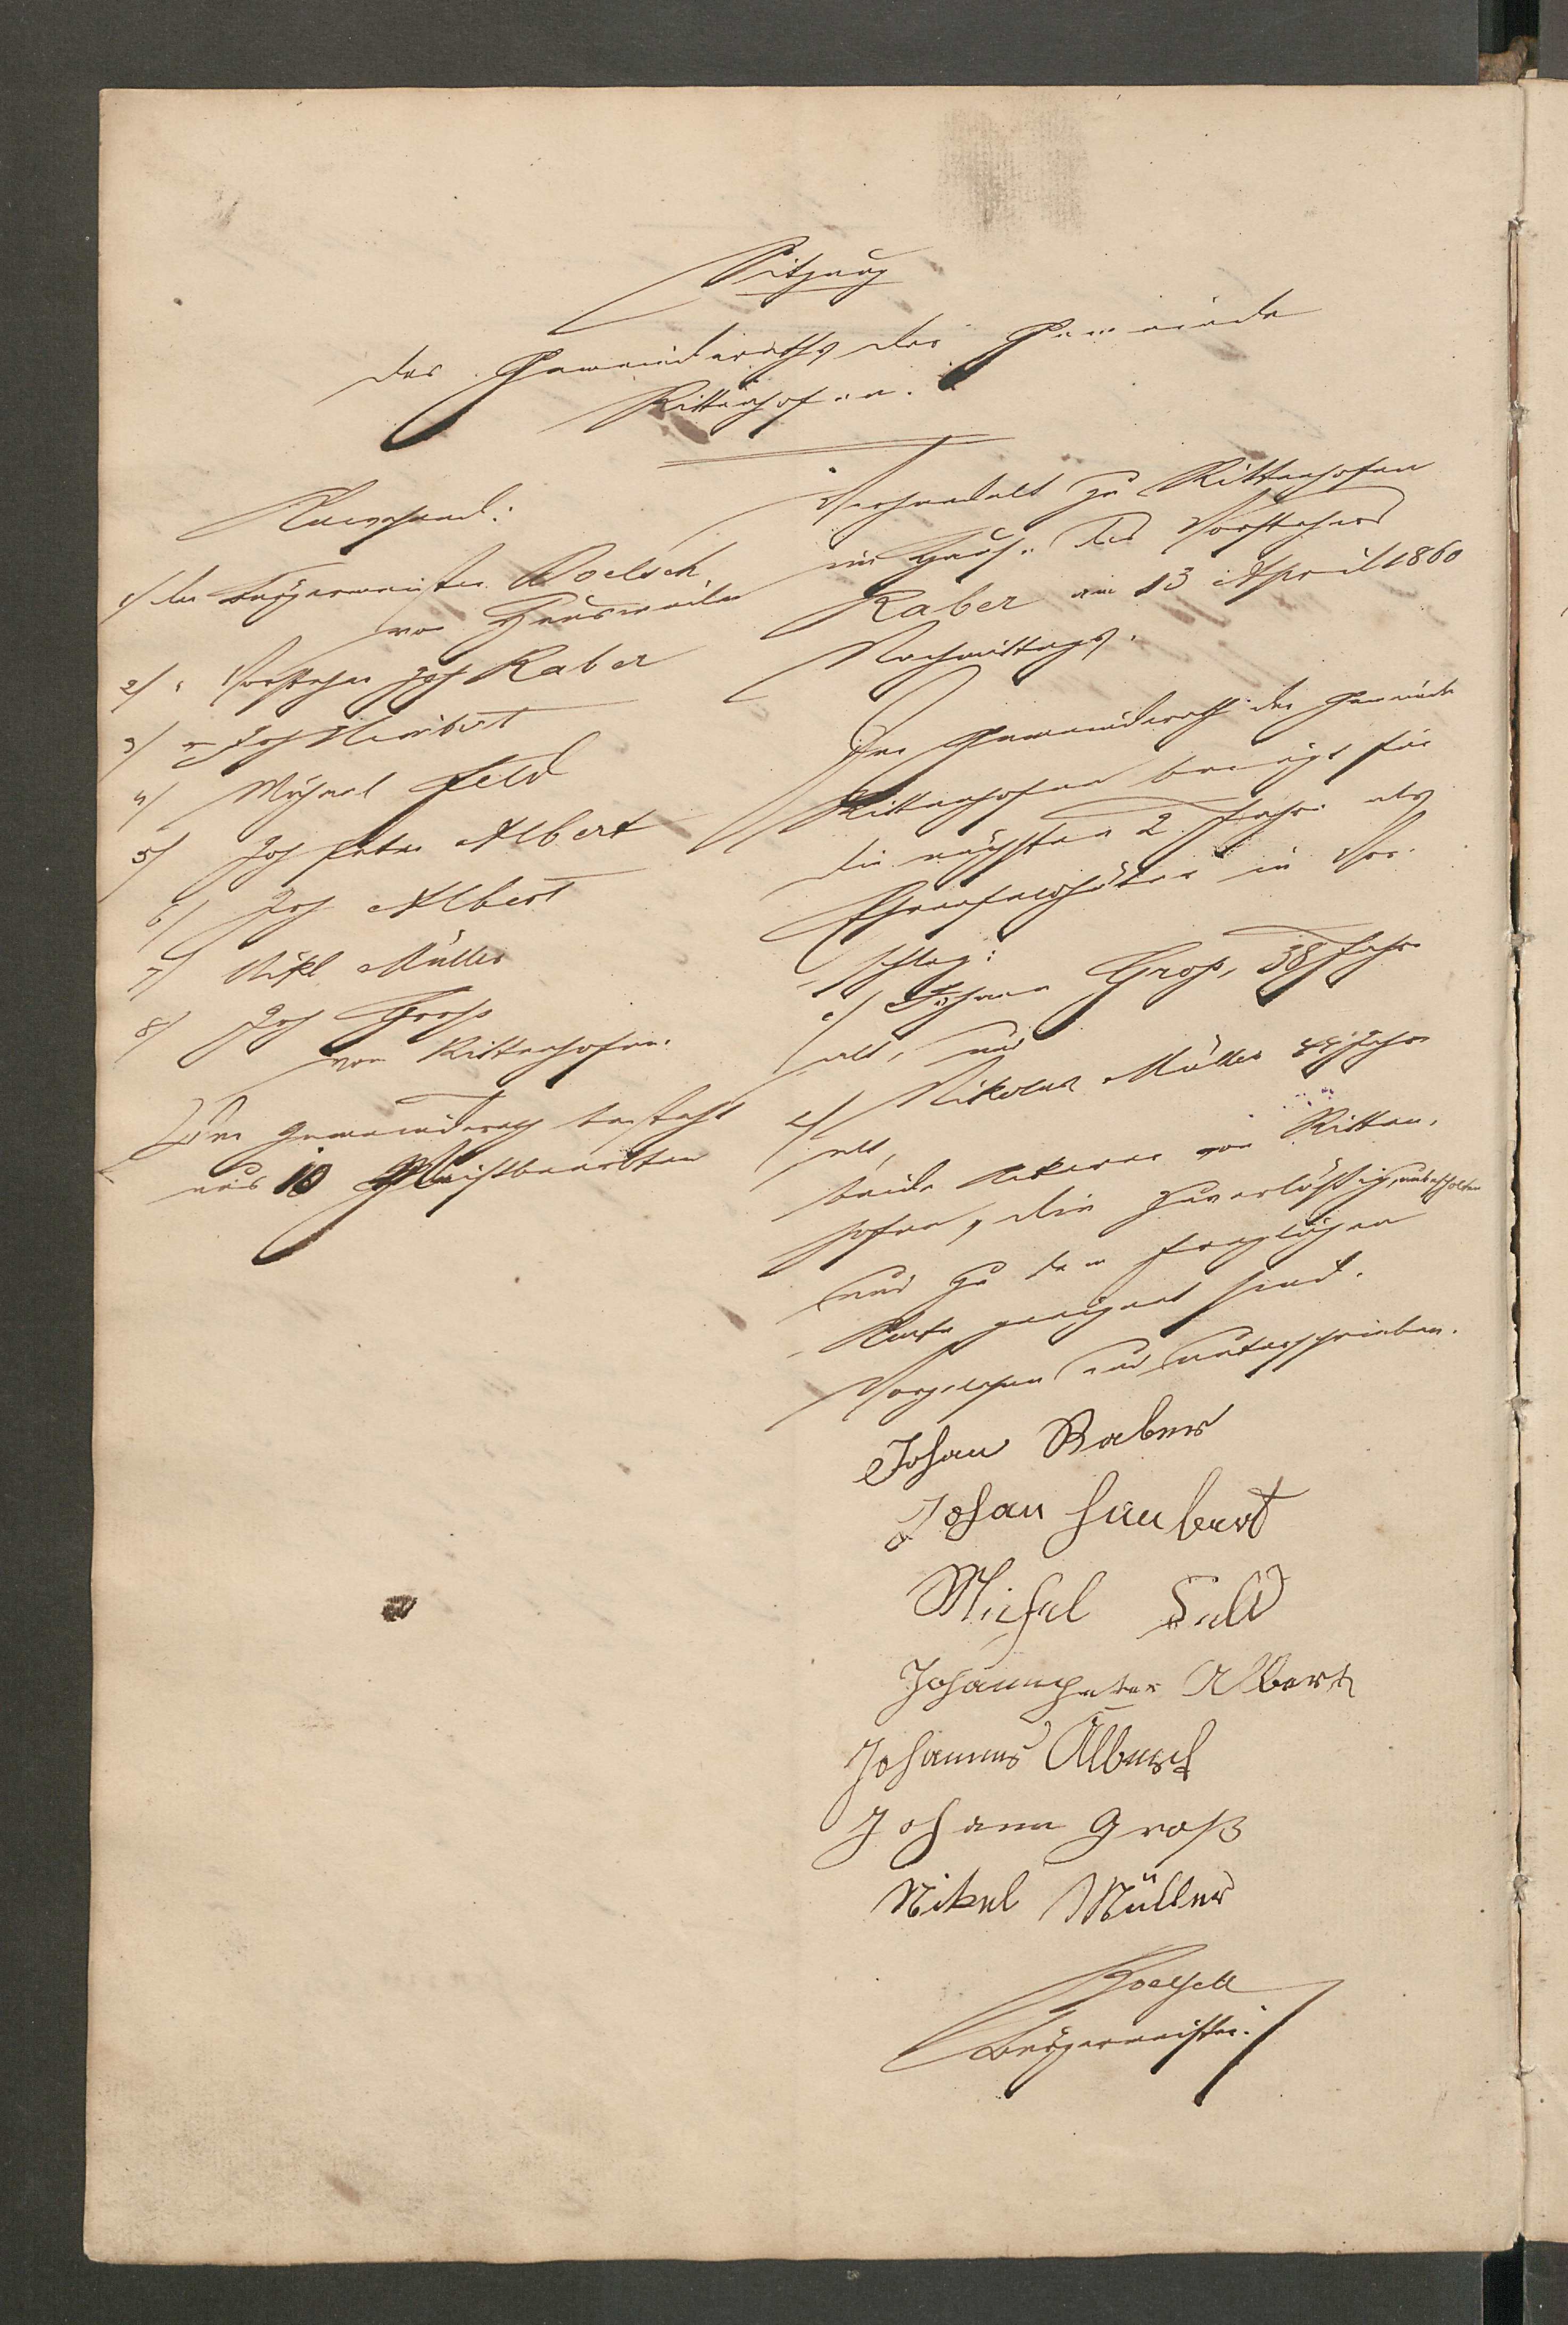 Sitzung
des Gemeinderaths der Gemeinde
Rittenhofen.
Anwesend:
1/ der Bürgermeister Boelsch
von Heusweiler
2/ " Vorsteher Joh Raber
3/ " Joh Heubert
4/ Michael Feld
5/ Joh Peter Albert
6/ Joh Albert
7/ Nikl Müller
8/ Joh Groß
von Rittenhofen.
Der Gemeinderath besteht
aus 10 Meistbeerbten
Verhandelt zu Rittenhofen
im Hause des Vorstehers
Raber am 13 April 1860
Nachmittags.
Der Gemeinderath der Gemeinde
Rittenhofen bringt für
die nächsten 2 Jahre als
Ehrenfeldhüter in Vor-
schlag:
1/ Johann Groß, 38 Jahre
alt, und
2/ Nikolaus Müller 44 Jahre
alt,
beide Ackerer von Ritten-
hofen, die zuverläßig, unbescholten
und zu dem fraglichen
Amte geeignet sind.
Vorgelesen und unterschrieben.
Johan Raber
Johan Heubert
Michel Feld
Johannpeter Albert
Johannes Albert
Johann Groß
Nikel Müller
Boelsch
Bürgermeister.